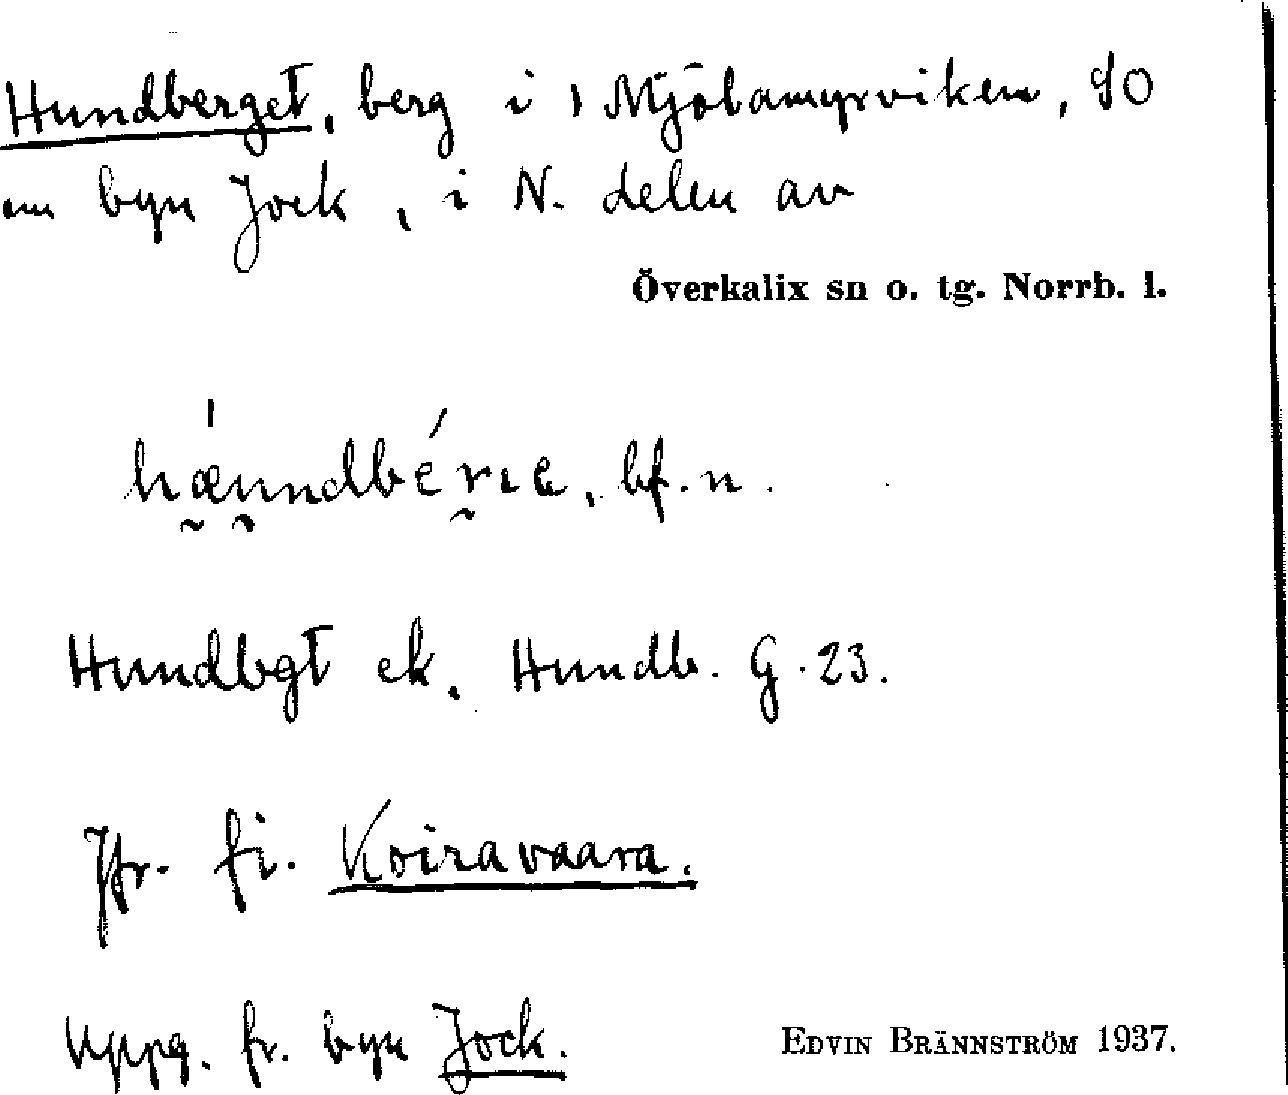 Hundberget, berg i Mjölamyrviken, SO
om byn Jock, i N. delen av
Överkalix sn o. tg. Norrb. l.
bf. n.
Hundbgt ek. Hundb. G. 23.
Jfr. fi. Koiravaara.
Uppg. fr. byn Jock.
EDVIN BRÄNNSTRÖM 1937.